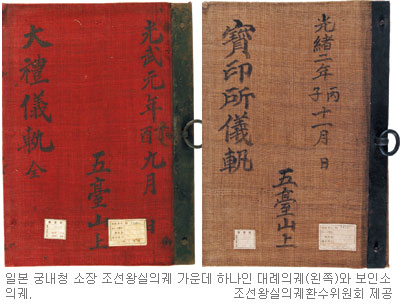 光武元年丁酉九月 日
五臺山上
大禮儀軌 全
光緒二年丙子十一月 日
五臺山上
寶印所儀軌
일본 궁내청 소장 조선왕실의궤 가운데 하나인 대례의궤(왼쪽)와 보인소
의궤. 조선왕실의궤환수위원회 제공